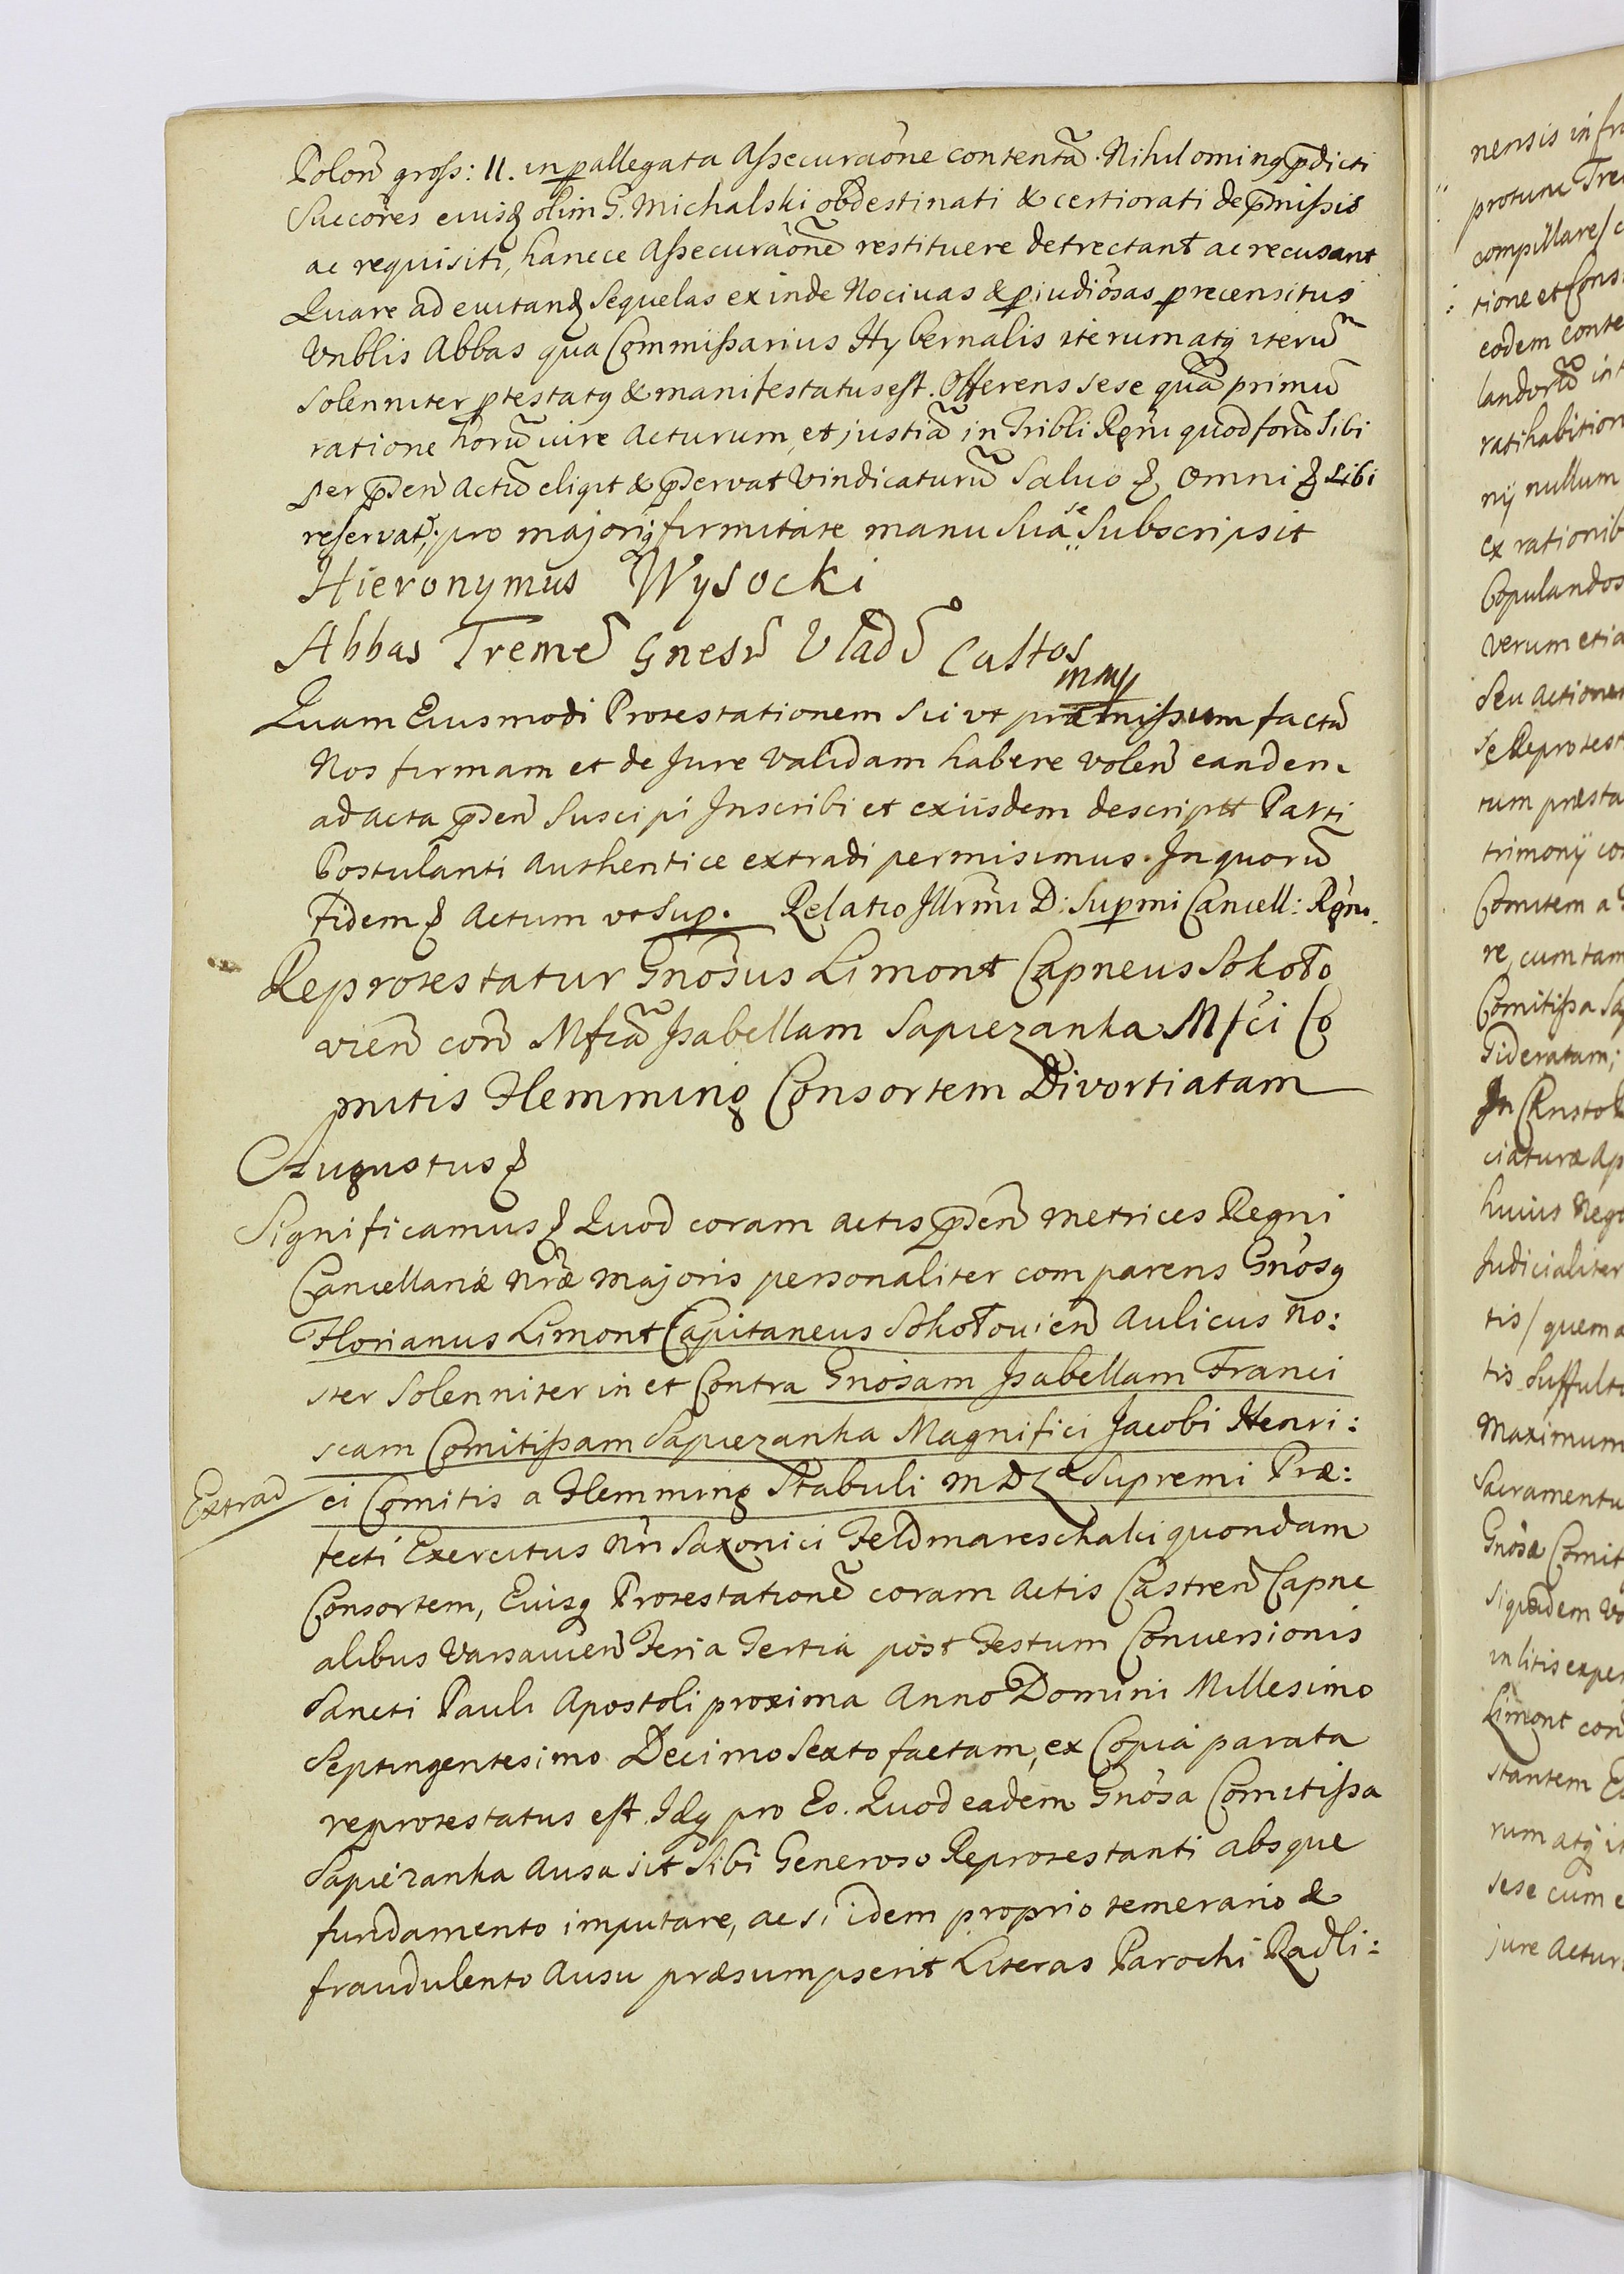 Polon̄ gross: 11. in pallegata Assecuraōne contentā. Nihilominq p̄dicti
Succōres eiusq olim G. Michalski obdestinati & certiorati de p̄missis
ac requisiti, hancce Assecuraōnē restituere detrectant ac recusant
Quare ad euitand Sequelas exinde Nociuas & p̄iudiōsas precensitus
Vnblis Abbas qua Commissarius Hybernalis iterum atq iterū
Solenniter ptestatq & manifestatus est. Offerens sese quā primū
ratione horū iure Acturum, et justiā in Tribli Rgni quod forū Sibi
per p̄sen̄ Actū eligit & p̄servat Vindicaturū Saluo & Omni & Sibi
reservat; pro majoriq firmitate manu Suā se Subscripsit
Hieronymus Wysocki
Abbas Treme̅ Gnesn̄ Vlad̄ Custos
mmp
Quam Eiusmodi Protestationem Sic vt præmissum factā
Nos firmam et de Jure Validam habere Volen̄ eandem
ad Acta p̄sen̄ Suscipi Inscribi et exiisdem descriptt Parti
Postulanti Authentice extradi permisimus. In quorū
Fidem & Actum vt Sup. Relatio Illrmi D: Supmi Cancell: Rgni.
Reprotestatur Gnōsus Limont Capneus Sokoło
vien̄ con̄ Mfcā Isabellam Sapiezanka Mfci Co
mitis Flemming Consortem Divortiatam
Augustus &
Significamus & Quod coram Actis p̄sen̄ Metrices Regni
Cancellariæ nr̄æ Majoris personaliter comparens Gnōsq
Florianus Limont Capitaneus Sokołouien̄ Aulicus no:
ster Solenniter in et Contra Gnōsam Isabellam Franci
scam Comitissam Sapiezanka Magnifici Jacobi Henri:
Extrad
ci Comitis a Flemming Stabuli M D L Supremi Præ:
fecti Exercitus nr̄i Saxonici Feldmareschalci quondam
Consortem, Eiusq Protestationē coram Actis Castren̄ Capne
alibus Varsauien̄ Feria Tertia post Festum Conuersionis
Sancti Pauli Apostoli proxima Anno Domini Millesimo
Septingentesimo Decimo Sexto factam, ex Copia parata
reprotestatus est. Idq pro Eo. Quod eadem Gnōsa Comitissa
Sapiezanka Ausa sit Sibi Generoso Reprotestanti absque
fundamento imputare, ac si idem proprio temerario &
fraudulento Ausu præsumpserit Literas Parochi Radli:
nensis infra
protunc Tre
compillare/ c
tione et Cons
eodem conte
landorū int
ratihabition
nÿ nullum
ex rationib
Copulandos
verum etia
Seu Actiones
se Reprotest
tum præsta
trimonÿ co
Comitem a
re, cum tam
Comitissa Sa
Fideratam;
In C
ciaturæ Ap
huius Nego
Judicialiter
tis/ quem a
tis Suffult
Maximum
Sacramentu
Gnōsæ Comit
siquidem
in litis exper
Limont con
stantem
rum atq it
sese cum e
jure Actur